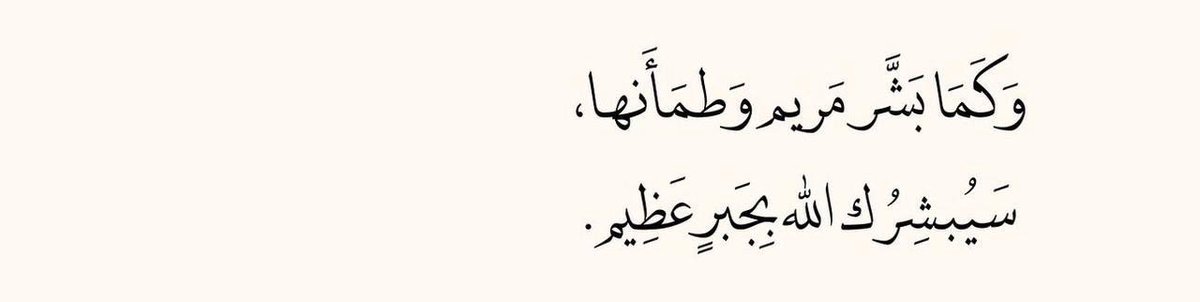 وَكَمَا بَشَّر مَريم وَطمَأَنها،
سَيُبشِرُك الله بِجَبرٍ عَظِيم.